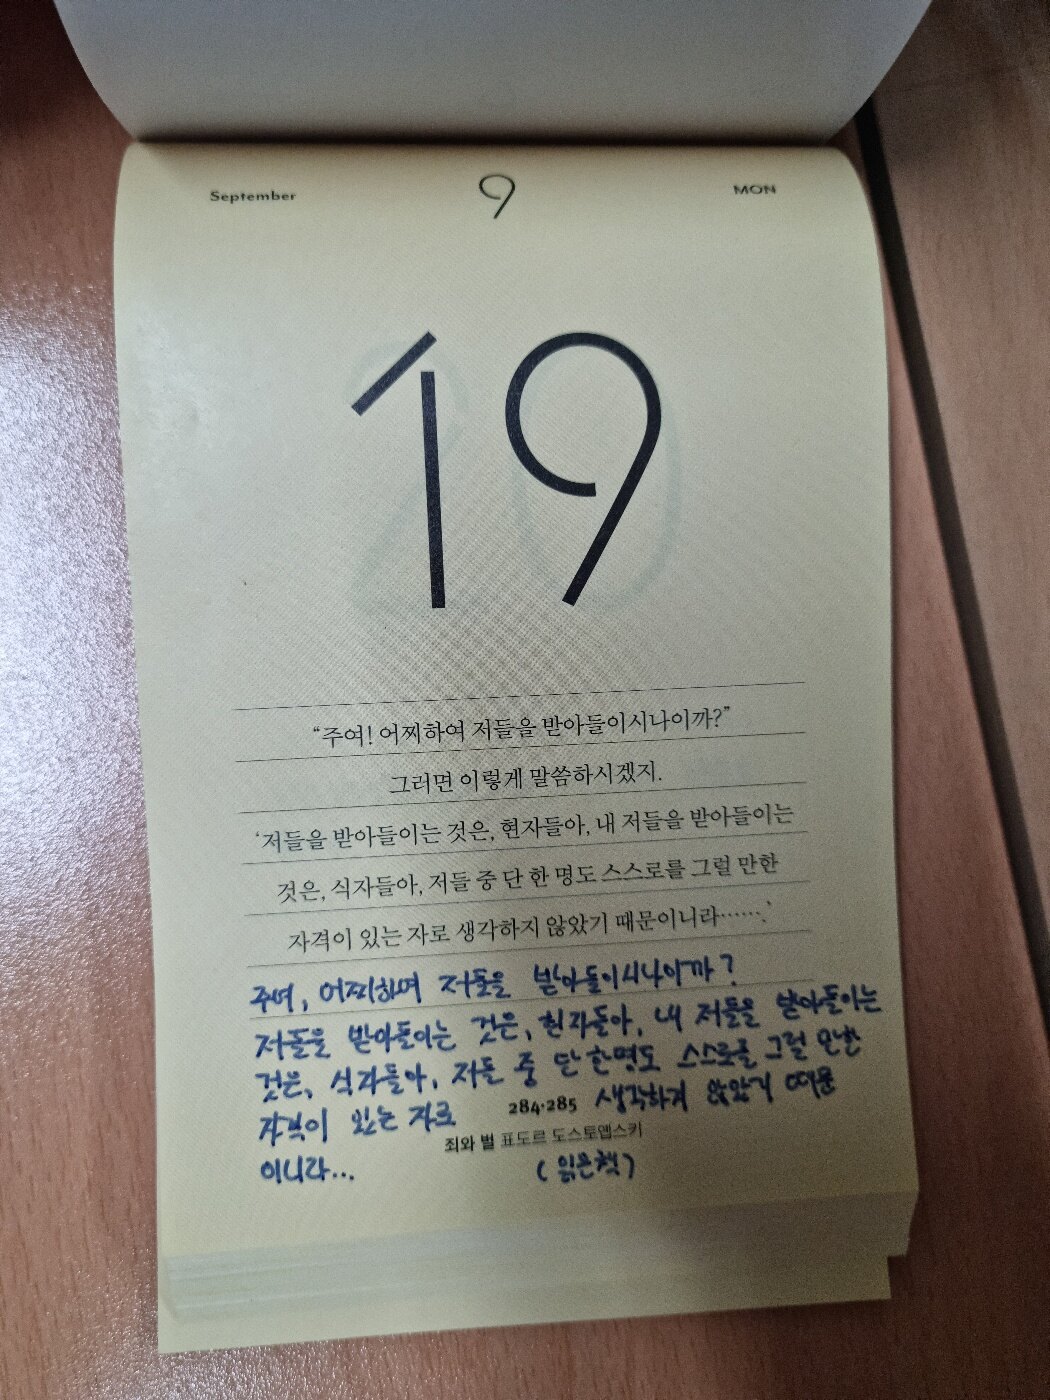 September 9 MON
19
“주여! 어찌하여 저들을 받아들이시나이까?”
그러면 이렇게 말씀하시겠지.
‘저들을 받아들이는 것은, 현자들아, 내 저들을 받아들이는
것은, 식자들아, 저들 중 단 한 명도 스스로를 그럴 만한
자격이 있는 자로 생각하지 않았기 때문이니라…….’
주여, 어찌하여 저들을 받아들이시나이까?
저들을 받아들이는 것은, 현자들아, 내 저들을 받아들이는
것은, 식자들아, 저들 중 단 한명도 스스로를 그럴 만한
자격이 있는 자로 284·285 생각하지 않았기 때문
죄와 벌 표도르 도스토옙스키
이니라... (읽은책)